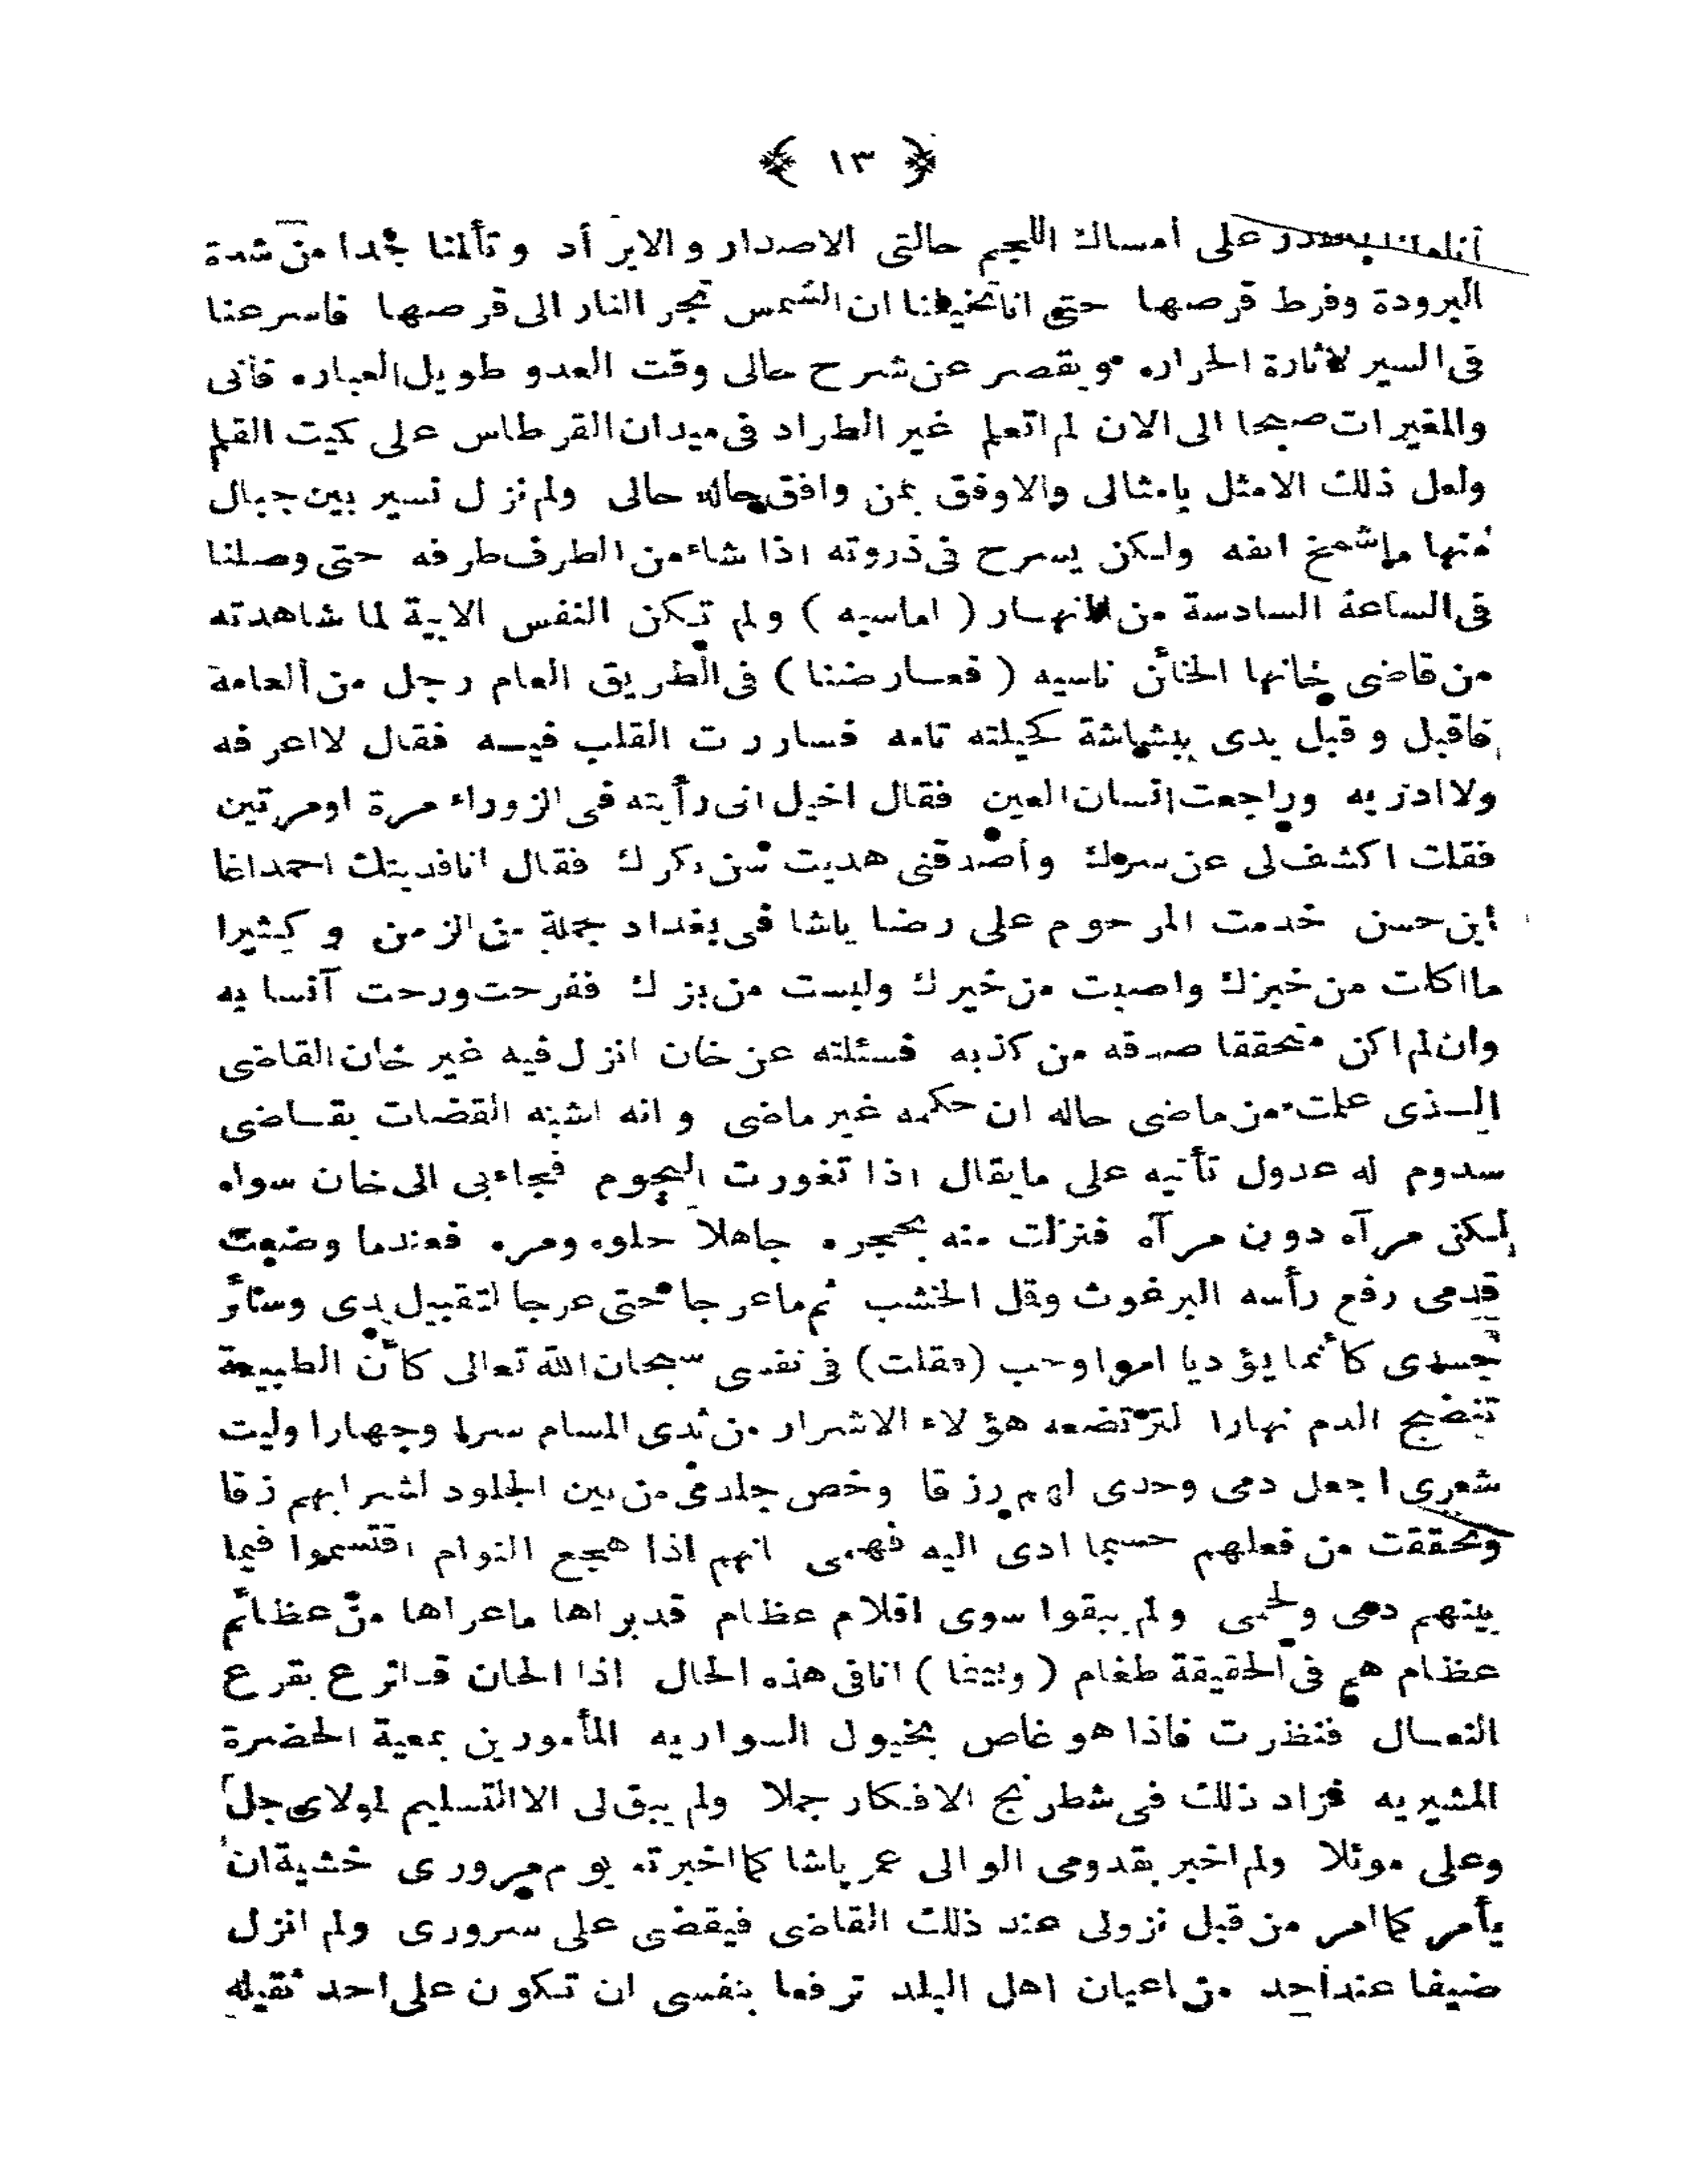 ﴿ ١٣ ﴾
أناملنا يقدر على امساك اللجم حالتى الاصدار والايرأد وتألمنا جدا من شدة
البرودة وفرط قرصها حتى انا تخيلنا ان الشمس تجر النار الى قرصها فاسرعنا
فى السير لاثارة الحراره ويقصر عن شرح حالى وقت العدو طويل العباره فانى
والمغيرات صبحا الى الان لم اتعلم غير الطراد فى ميدان القرطاس على كميت القلم
ولعل ذلك الامثل بامثالى والاوفق بمن وافق حاله حالى ولم نزل نسير بين جبال
منها ماشمخ انفه ولكن يسرح فى ذروته اذا شاء من الطرف طرفه حتى وصلنا
فى الساعة السادسة من النهار ( اماسيه ) ولم تكن النفس الابية لما شاهدته
من قاضى خانها الخائن ناسيه ( فعارضنا ) فى الطريق العام رجل من العامة
فاقبل وقبل يدى ببشاشة كحيلته تامه فساررت القلب فيه فقال لااعرفه
ولاادريه وراجعت انسان العين فقال اخيل انى رأيته فى الزوراء مرة اومرتين
فقلت اكشف لى عن سرك وأصدقنى هديت سن بكرك فقال انا فديتك احمداغا
ابن حسن خدمت المرحوم على رضا پاشا فى بغداد جملة من الزمن وكثيرا
مااكلت من خبزك واصبت من خيرك ولبست من بزك ففرحت ورحت آنسا به
وان لم اكن متحققا صدقه من كذبه فسئلته عن خان انزل فيه غير خان القاضى
الذى علمت من ماضى حاله ان حكمه غير ماضى وانه اشبه القضات بقاضى
سدوم له عدول تأتيه على مايقال اذا تغورت النجوم فجاء بى الى خان سواه
لكنى مرآه دون مرآه فنزلت منه بحجره جاهلا حلوه ومره فعندما وضعت
قدمى رفع رأسه البرغوث وقمل الخشب ثم ماعرجا حتى عرجا لتقبيل يدى وسائر
جسدى كأنما يؤديا امرا وجب (فقلت) فى نفسى سبحان الله تعالى كأن الطبيعة
تنضج الدم نهارا لترتضعه هؤلاء الاشرار من ثدى المسام سرا وجهارا وليت
شعرى اجعل دمى وحدى لهم رزقا وخص جلدى من بين الجلود لشرابهم زقا
وتحققت من فعلهم حسبما ادى اليه فهمى انهم اذا هجع النوام اقتسموا فيما
بينهم دمى ولحمى ولم يبقوا سوى اقلام عظام قد براها ماعراها من عظائم
عظام هم فى الحقيقة طغام ( وبينما ) انا فى هذه الحال اذا الخان قد اترع بقرع
النعال فنظرت فاذا هو غاص بخيول السواريه المأمورين بمعية الحضرة
المشيريه فزاد ذلك فى شطرنج الافكار جملا ولم يبق لى الا التسليم لمولاى جل
وعلى موئلا ولم اخبر بقدومى الوالى عمر پاشا كما اخبرته يوم مرورى خشية ان
يأمر كما امر من قبل نزولى عند ذلك القاضى فيقضى على سرورى ولم انزل
ضيفا عند احد من اعيان اهل البلد ترفعا بنفسى ان تكون على احد ثقيله